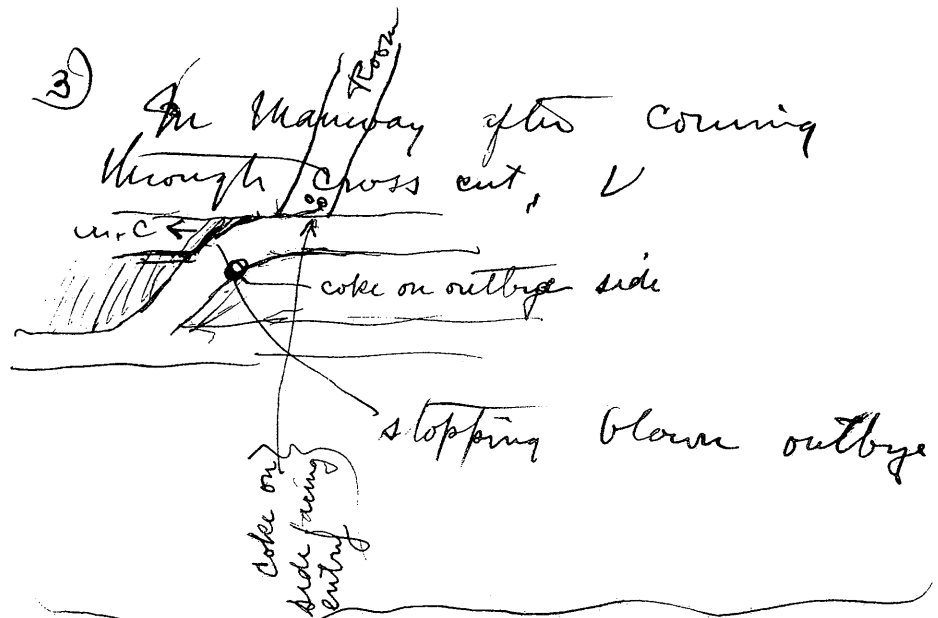 (3)
Room
In Manway after coming
through cross cut, V
m.c
coke on outbye side
stopping blown outbye
coke on
side facing
entry